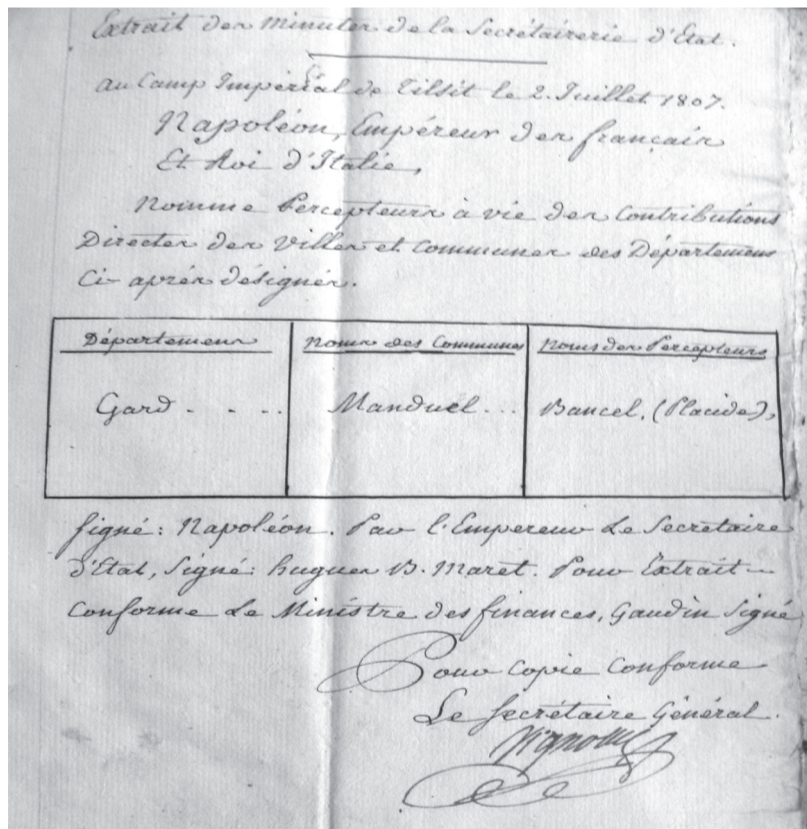 Extrait des minutes de la Secrétairerie d'Etat.
au Camp Impérial de Tilsit le 2. Juillet 1807.
Napoléon, Empéreur des français
Et Roi d'Italie,
Nomme Percepteurs à vie des Contributions
Directes des Villes et communes des Départemens
Ci-après désignés.
Départemens
Noms des Communes
Noms des Percepteurs
Gard - - - ..
Manduel ...
Bancel, (Placide),
signé: Napoléon. Par l'Empereur Le Secrétaire
d'Etat, signé: hugues B. Maret. Pour Extrait
Conforme Le Ministre des finances, Gaudin signé
Pour Copie Conforme
Le Secrétaire Général.